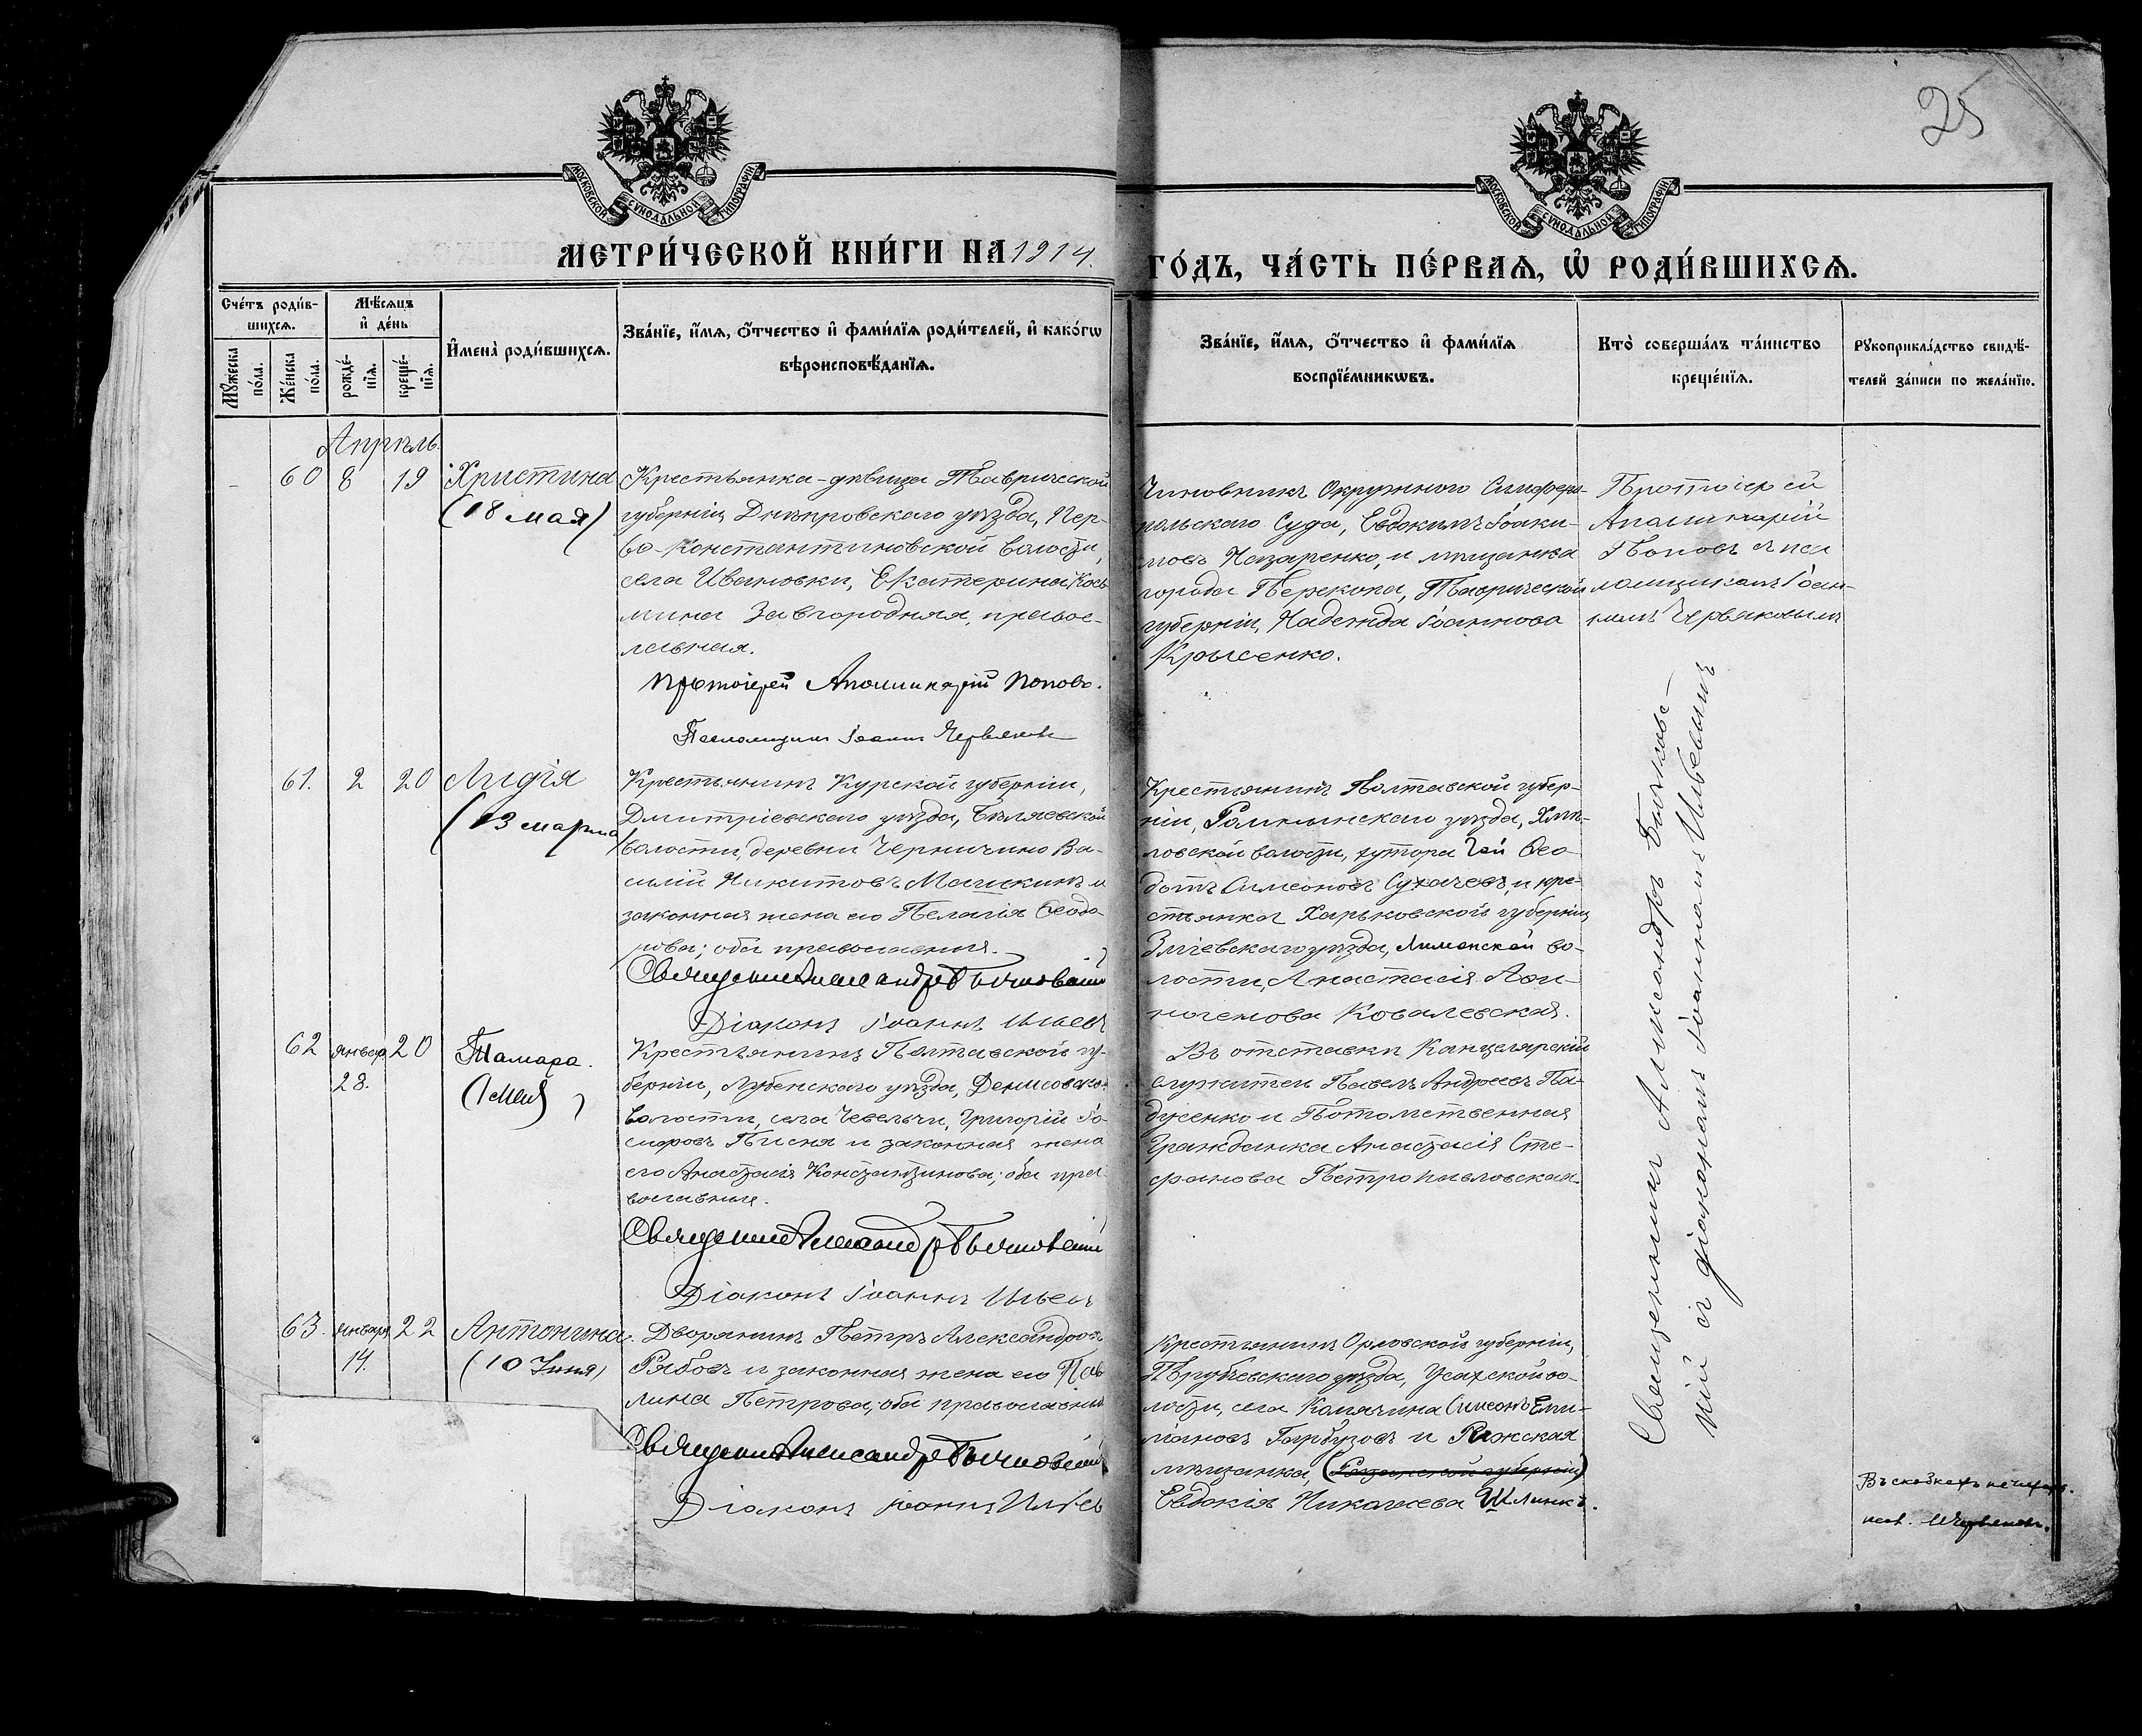 25
МОСКОВСКОЙ СѴНОДАЛЬНОЙ ТИПОГРАФІИ
МОСКОВСКОЙ СѴНОДАЛЬНОЙ ТИПОГРАФІИ
МЕТРИ́ЧЕСКОЙ КНИ́ГИ НА 1914.
ГО́ДЪ, ЧА́СТЬ ПЕ́РВАѦ, Ѡ҆ РОДИ́ВШИХСѦ.
Сче́тъ роди́в-
шихсѧ.
Мꙋ́жеска
по́ла.
Же́нска
по́ла.
Мѣ́сѧцъ
и҆ де́нь
рожде́-
нїѧ.
креще́-
нїѧ.
И҆мена̀ роди́вшихсѧ.
Зва́нїе, и҆́мѧ, ѻ҆́тчество и҆ фами́лїѧ роди́телей, и҆ како́гѡ
вѣроисповѣ́данїѧ.
Зва́нїе, и҆́мѧ, ѻ҆́тчество и҆ фами́лїѧ
воспрїе́мникѡвъ.
Кто̀ соверша́лъ та́инство
креще́нїѧ.
Рꙋкоприкла́дство свидѣ́-
телей за́писи по жела́нїю.
Апрѣль.
60 8 19 Христина
(18 мая)
Крестьянка-дѣвица Таврической
губерніи, Днѣпровскаго уѣзда, Пер-
во-Константиновской волости,
села Ивановки, Екатерина Кось
мина Завгородняя, правос-
лавная.
Протоіерей Аполлинарій Поповъ.
Псаломщикъ Іоаннъ Червяковъ
Чиновникъ Окружного Симферо-
польскаго Суда, Евдокимъ Іоаки-
мовъ Назаренко, и мѣщанка
города Перекопа, Таврической
губерніи, Надежда Іоаннова
Крысенко.
Протоіерей
Аполинарій
Поповъ съ пса
ломщикомъ Іоан-
номъ Червяковымъ
61. 2 20 Лидія
(23 марта)
Крестьянинъ Курской губерніи,
Дмитріевскаго уѣзда, Бѣляевской
волости, деревни Черничино Ва-
силій Никитовъ Машкинъ и
законная жена его Пелагія Ѳеодо-
рова; оба православные.
Священникъ Александръ
Діаконъ Іоаннъ Ильевъ
Крестьянинъ Полтавской губер-
ніи, Роменскаго уѣзда, Хмѣ-
ловской волости, хутора Гай Ѳео-
дотъ Симеоновъ Сухачевъ, и кре-
стьянка Харьковской губерніи
Зміевскаго уѣзда, Лиманской во-
лости, Анастасія
Ковалевская.
62 января 20 Тамара.
28. (1 мая)
Крестьянинъ Полтавской гу-
берніи, Лубенскаго уѣзда, Денисовской
волости, села Чевельчи, Григорій Іо-
сифовъ Писня и законная жена
его Анастасія Константинова; оба пра-
вославные.
Священникъ Александръ
Діаконъ Іоаннъ Ильевъ
Въ отставки Канцелярскій
служитель Павелъ Андреевъ Па-
дженко и Потомственная
Гражданка Анастасія Сте-
фанова Петропавловская.
63. января 22 Антонина.
14. (10 Іюня)
Дворянинъ Петръ Александровъ
Рябовъ и законная жена его Пав
лина Петрова; оба православные
Священникъ Александръ
Діаконъ Іоаннъ Ильевъ
Крестьянинъ Орловской губерніи,
Трубчевскаго уѣзда, Усахской во-
лости, села Колячина Симеонъ Еми-
ліановъ Гарбузовъ и Рижская
мѣщанка,
Евдокія Николаева Шлинкъ.
Священникъ Александръ
ній съ діакономъ Іоанномъ Ильевымъ
Въ скобкахъ не читать.
псал. І. Червяковъ.